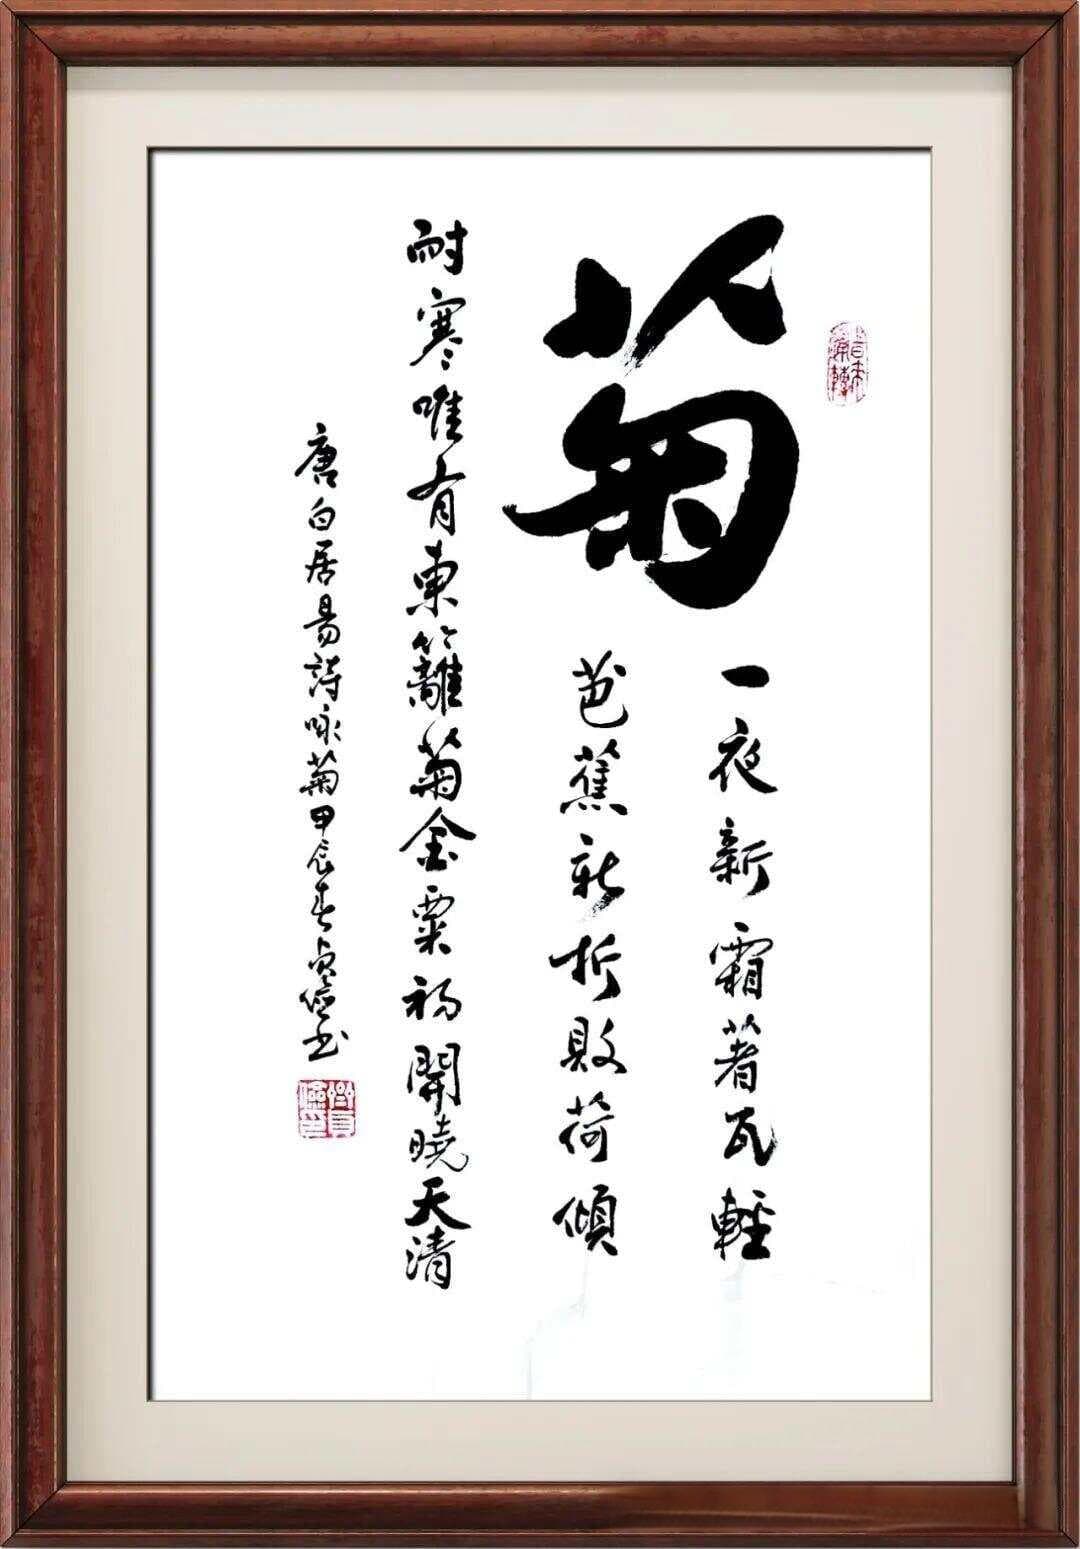 菊
一夜新霜著瓦輕
芭蕉新折敗荷傾
耐寒唯有東籬菊金粟初開曉天清
唐白居易詩咏菊甲辰春貞儉书